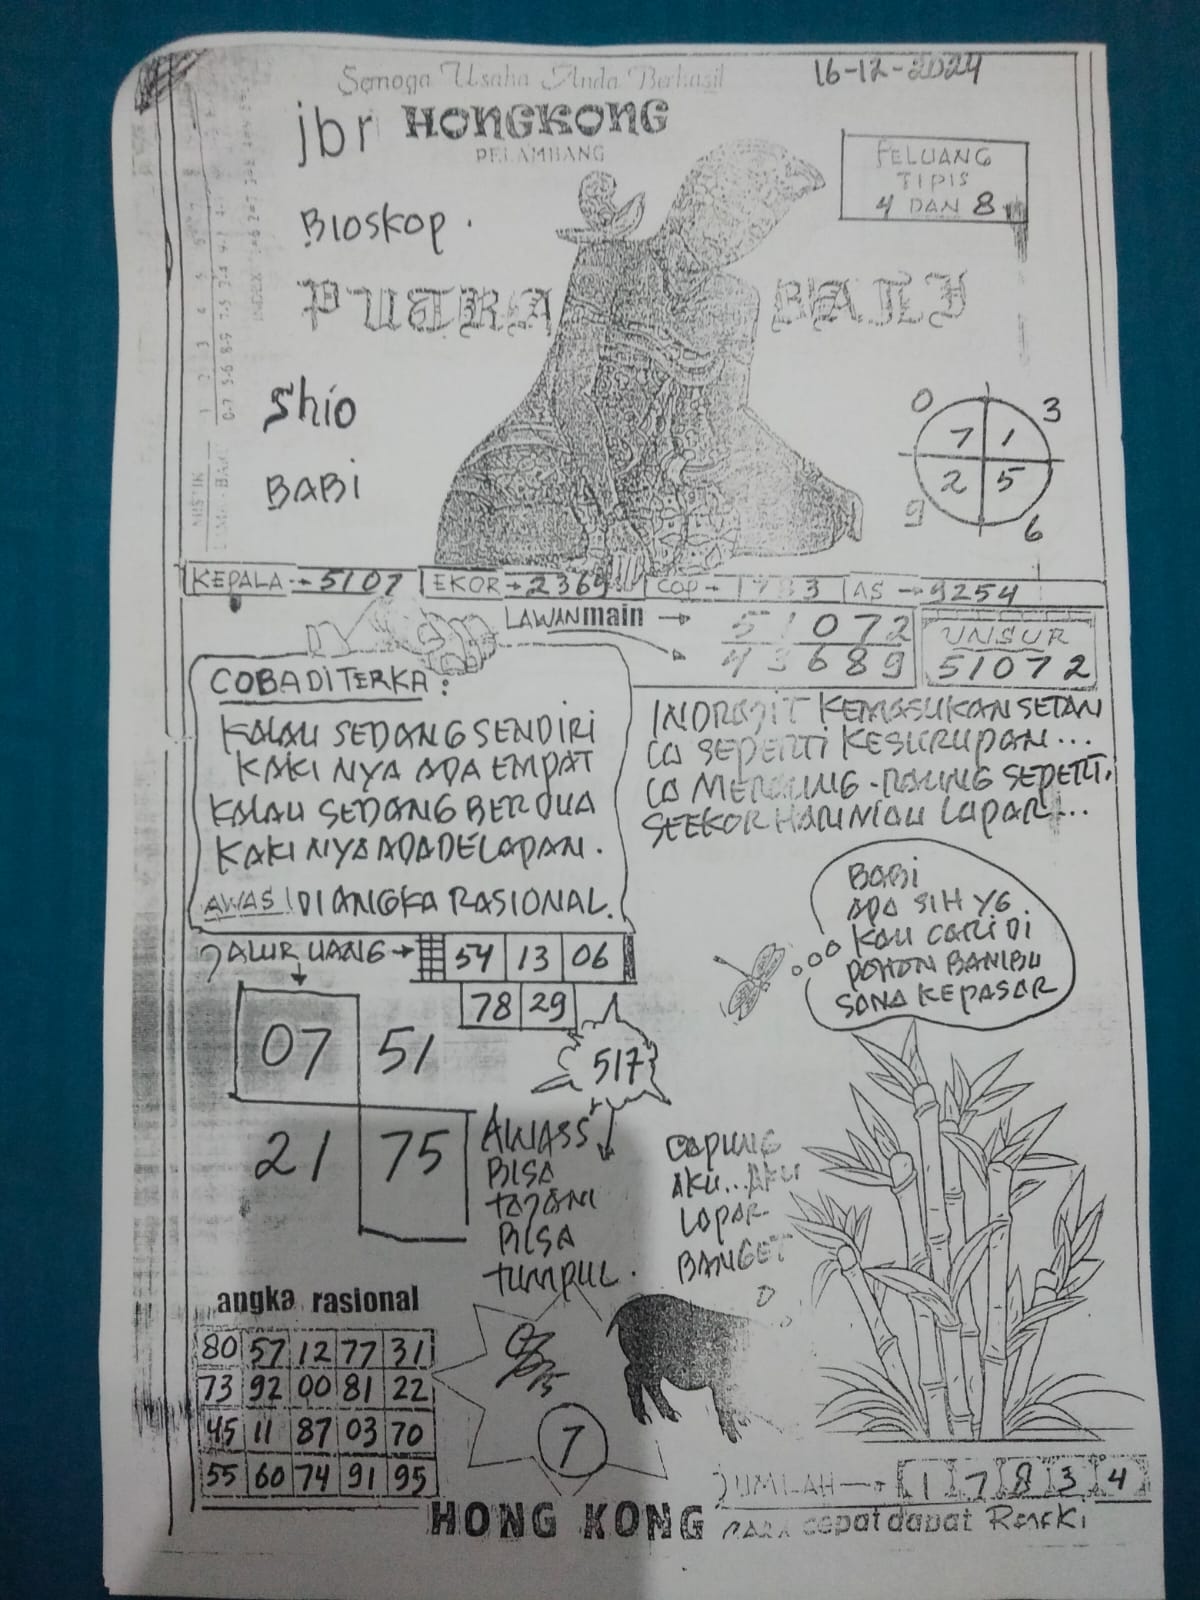 Semoga Usaha Anda Berhasil
16-12-2024
jbr HONGKONG
PELAMBANG
PELUANG
TIPIS
4 DAN 8
Bioskop.
PUTRA BALI
Shio
BABI
0 3
7 1
2 5
9 6
KEPALA → 5107 EKOR → 2369 COP → 1783 AS → 9254
LAWAN main → 51072
43689
UNSUR
51072
COBA DITERKA :
KALAU SEDANG SENDIRI
KAKI NYA ADA EMPAT
KALAU SEDANG BERDUA
KAKI NYA ADA DELAPAN.
AWAS! DI ANGKA RASIONAL.
INDRAJIT KEMASUKAN SETAN
IA SEPERTI KESURUPAN...
IA MERAUNG-RAUNG SEPERTI
SEEKOR HARIMAU LAPAR...
BABI
ADA SIH YG
KAU CARI DI
POHON BAMBU
SANA KEPASAR
JALUR UANG → 54 13 06
78 29
07 51
517
21 75
AWASS
BISA
TAJAM
BISA
TUMPUL.
CAPUNG
AKU...AKU
LAPAR
BANGET
angka rasional
80 57 12 77 31
73 92 00 81 22
45 11 87 03 70
55 60 74 91 95
7
JUMLAH → 1 7 8 3 4
HONG KONG
cepat dapat